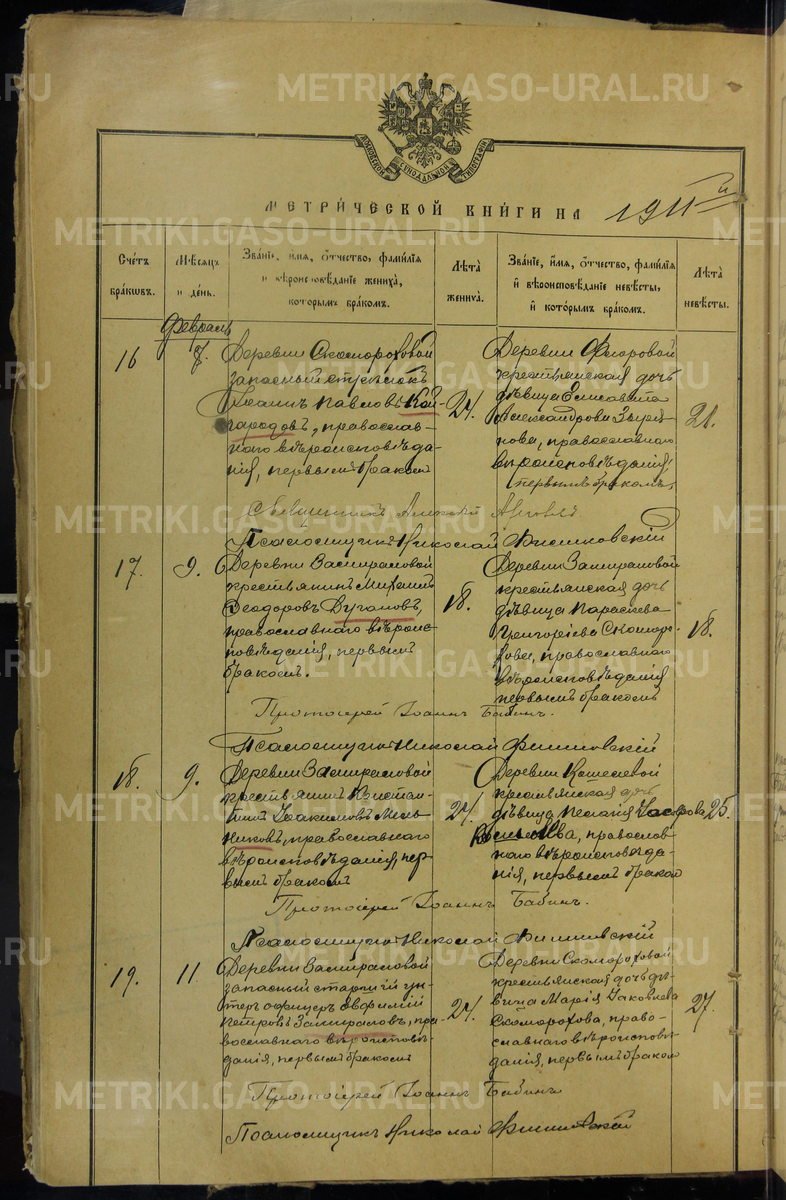 МОСКОВСКОЙ СѴНОДАЛЬНОЙ ТИПОГРАФІИ
МЕТРИ́ЧЕСКОЙ КНИ́ГИ НА 1911й
Сче́тъ бра́кωвъ.
Мѣ́сяцъ и де́нь.
Зва́нїе, и́мя, ѻ́тчество, фами́лїя и вѣроисповѣ́данїе жениха̀, кото́рымъ бра́комъ.
Лѣ́та жениха̀.
Зва́нїе, и́мя, ѻ́тчество, фами́лїя и҆ вѣроисповѣ́данїе невѣ́сты, и҆ кото́рымъ бра́комъ.
Лѣ́та невѣ́сты.
Февраль
16
7.
Деревни Скомороховой
запасный стрѣлокъ
Іоаннъ Павловъ Кай-
городовъ, православ-
наго вѣроисповѣда-
нія, первымъ бракомъ
24.
Деревни
крестьянская дочь
дѣвица Елисавета
Александрова Зыря-
нова, православнаго
вѣроисповѣданія,
первымъ бракомъ
21.
Священникъ Алексій
Псаломщикъ Николай
17.
9.
Деревни Замираловой
крестьянинъ Михаилъ
Ѳеодоровъ
православнаго вѣроис-
повѣданія, первымъ
бракомъ.
18.
Деревни Замираловой
крестьянская дочь
дѣвица Параскева
Григоріева Скоморо-
хова, православнаго
вѣроисповѣданія
первымъ бракомъ
18.
Протоіерей Іоаннъ Бабинъ.
Псаломщикъ Николай
18.
9.
Деревни Замираловой
крестьянинъ Констан-
тинъ Іоакимовъ Мель-
никовъ, православнаго
вѣроисповѣданія, пер-
вымъ бракомъ
24.
Деревни Кошелевой
крестьянская дочь
дѣвица Пелагія
православ-
наго вѣроисповѣда-
нія, первымъ бракомъ
25.
Протоіерей Іоаннъ Бабинъ.
Псаломщикъ Николай
19.
11
Деревни Замираловой
запасный старшій ун-
теръ офицеръ Евфимій
Петровъ Замираловъ, пра-
вославнаго вѣроисповѣ-
данія, первымъ бракомъ
24.
Деревни Скомороховой
крестьянская дочь дѣ-
вица Марія Іаковлева
Скоморохова, право-
славнаго вѣроисповѣ-
данія, первымъ бракомъ
27.
Протоіерей Іоаннъ Бабинъ
Псаломщикъ Николай
METRIKI.GASO-URAL.RU